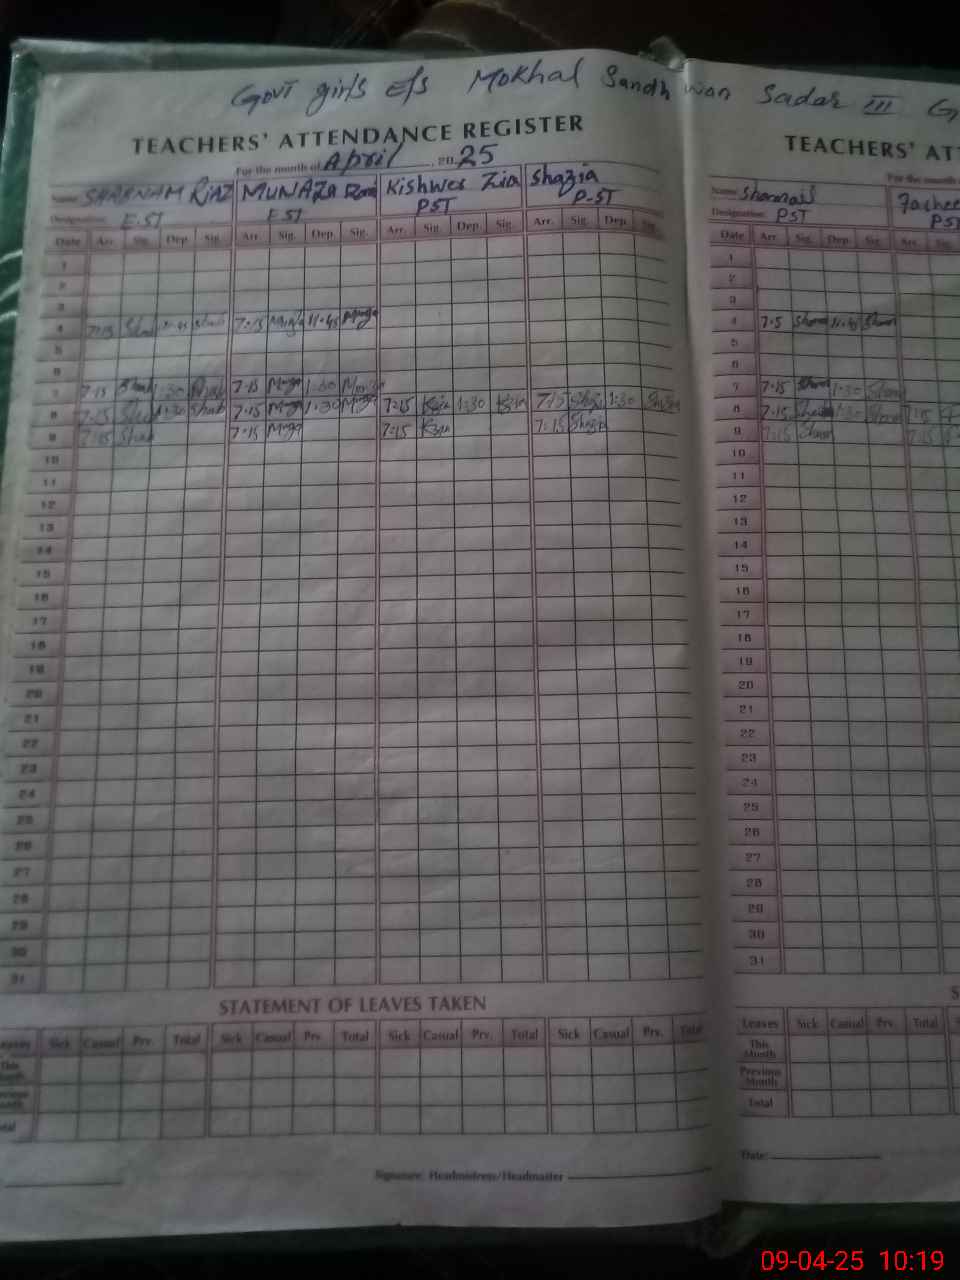 Govt girls E/S Mokhal Sandhwan Sadar III G
TEACHERS' ATTENDANCE REGISTER
For the month of April, 2025
Name SHABNAM RIAZ MUNAZA Kishwer Zia Shazia
Designation EST EST PST P-ST
Date Arr. Sig. Dep. Sig. Arr. Sig. Dep. Sig. Arr. Sig. Dep. Sig. Arr. Sig. Dep. Sig.
1
2
3
4 7:15 Shab 11:45 Shab 7:15 11:45
5
6
7 7:15 Shab 1:30 Shab 7:15 1:30
8 7:15 Shab 1:30 Shab 7:15 1:30 7:15 1:30 7:15 1:30
9 7:15 Shab 7:15 7:15 7:15
10
11
12
13
14
15
16
17
18
19
20
21
22
23
24
25
26
27
28
29
30
31
STATEMENT OF LEAVES TAKEN
Leaves Sick Casual Prv. Total Sick Casual Prv. Total Sick Casual Prv. Total Sick Casual Prv. Total
This Month
Previous Month
Total
Signature: Headmistress/Headmaster
TEACHERS' AT
For the month
Name
Designation PST PST
Date Arr. Sig. Dep. Sig. Arr. Sig.
1
2
3
4 7:5 11:45
5
6
7 7:15 1:30
8 7:15 1:30 7:15
9 7:15 7:15
10
11
12
13
14
15
16
17
18
19
20
21
22
23
24
25
26
27
28
29
30
31
S
Leaves Sick Casual Prv. Total
This Month
Previous Month
Total
Date:
09-04-25 10:19